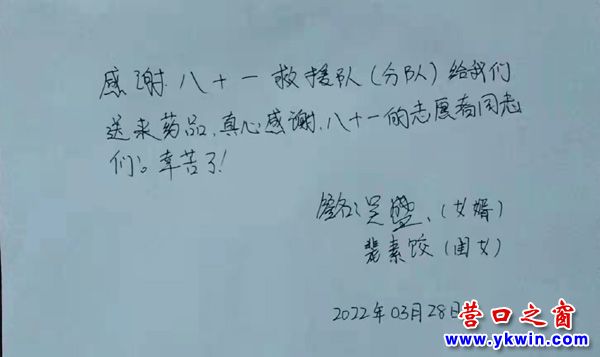 感谢八十一救援队(分队)给我们
送来药品,真心感谢.八十一的志愿者同志
们。幸苦了!
签名:吴盛、(女婿)
裴素饺(闺女)
2022年03月28日
营口之窗
www.ykwin.com